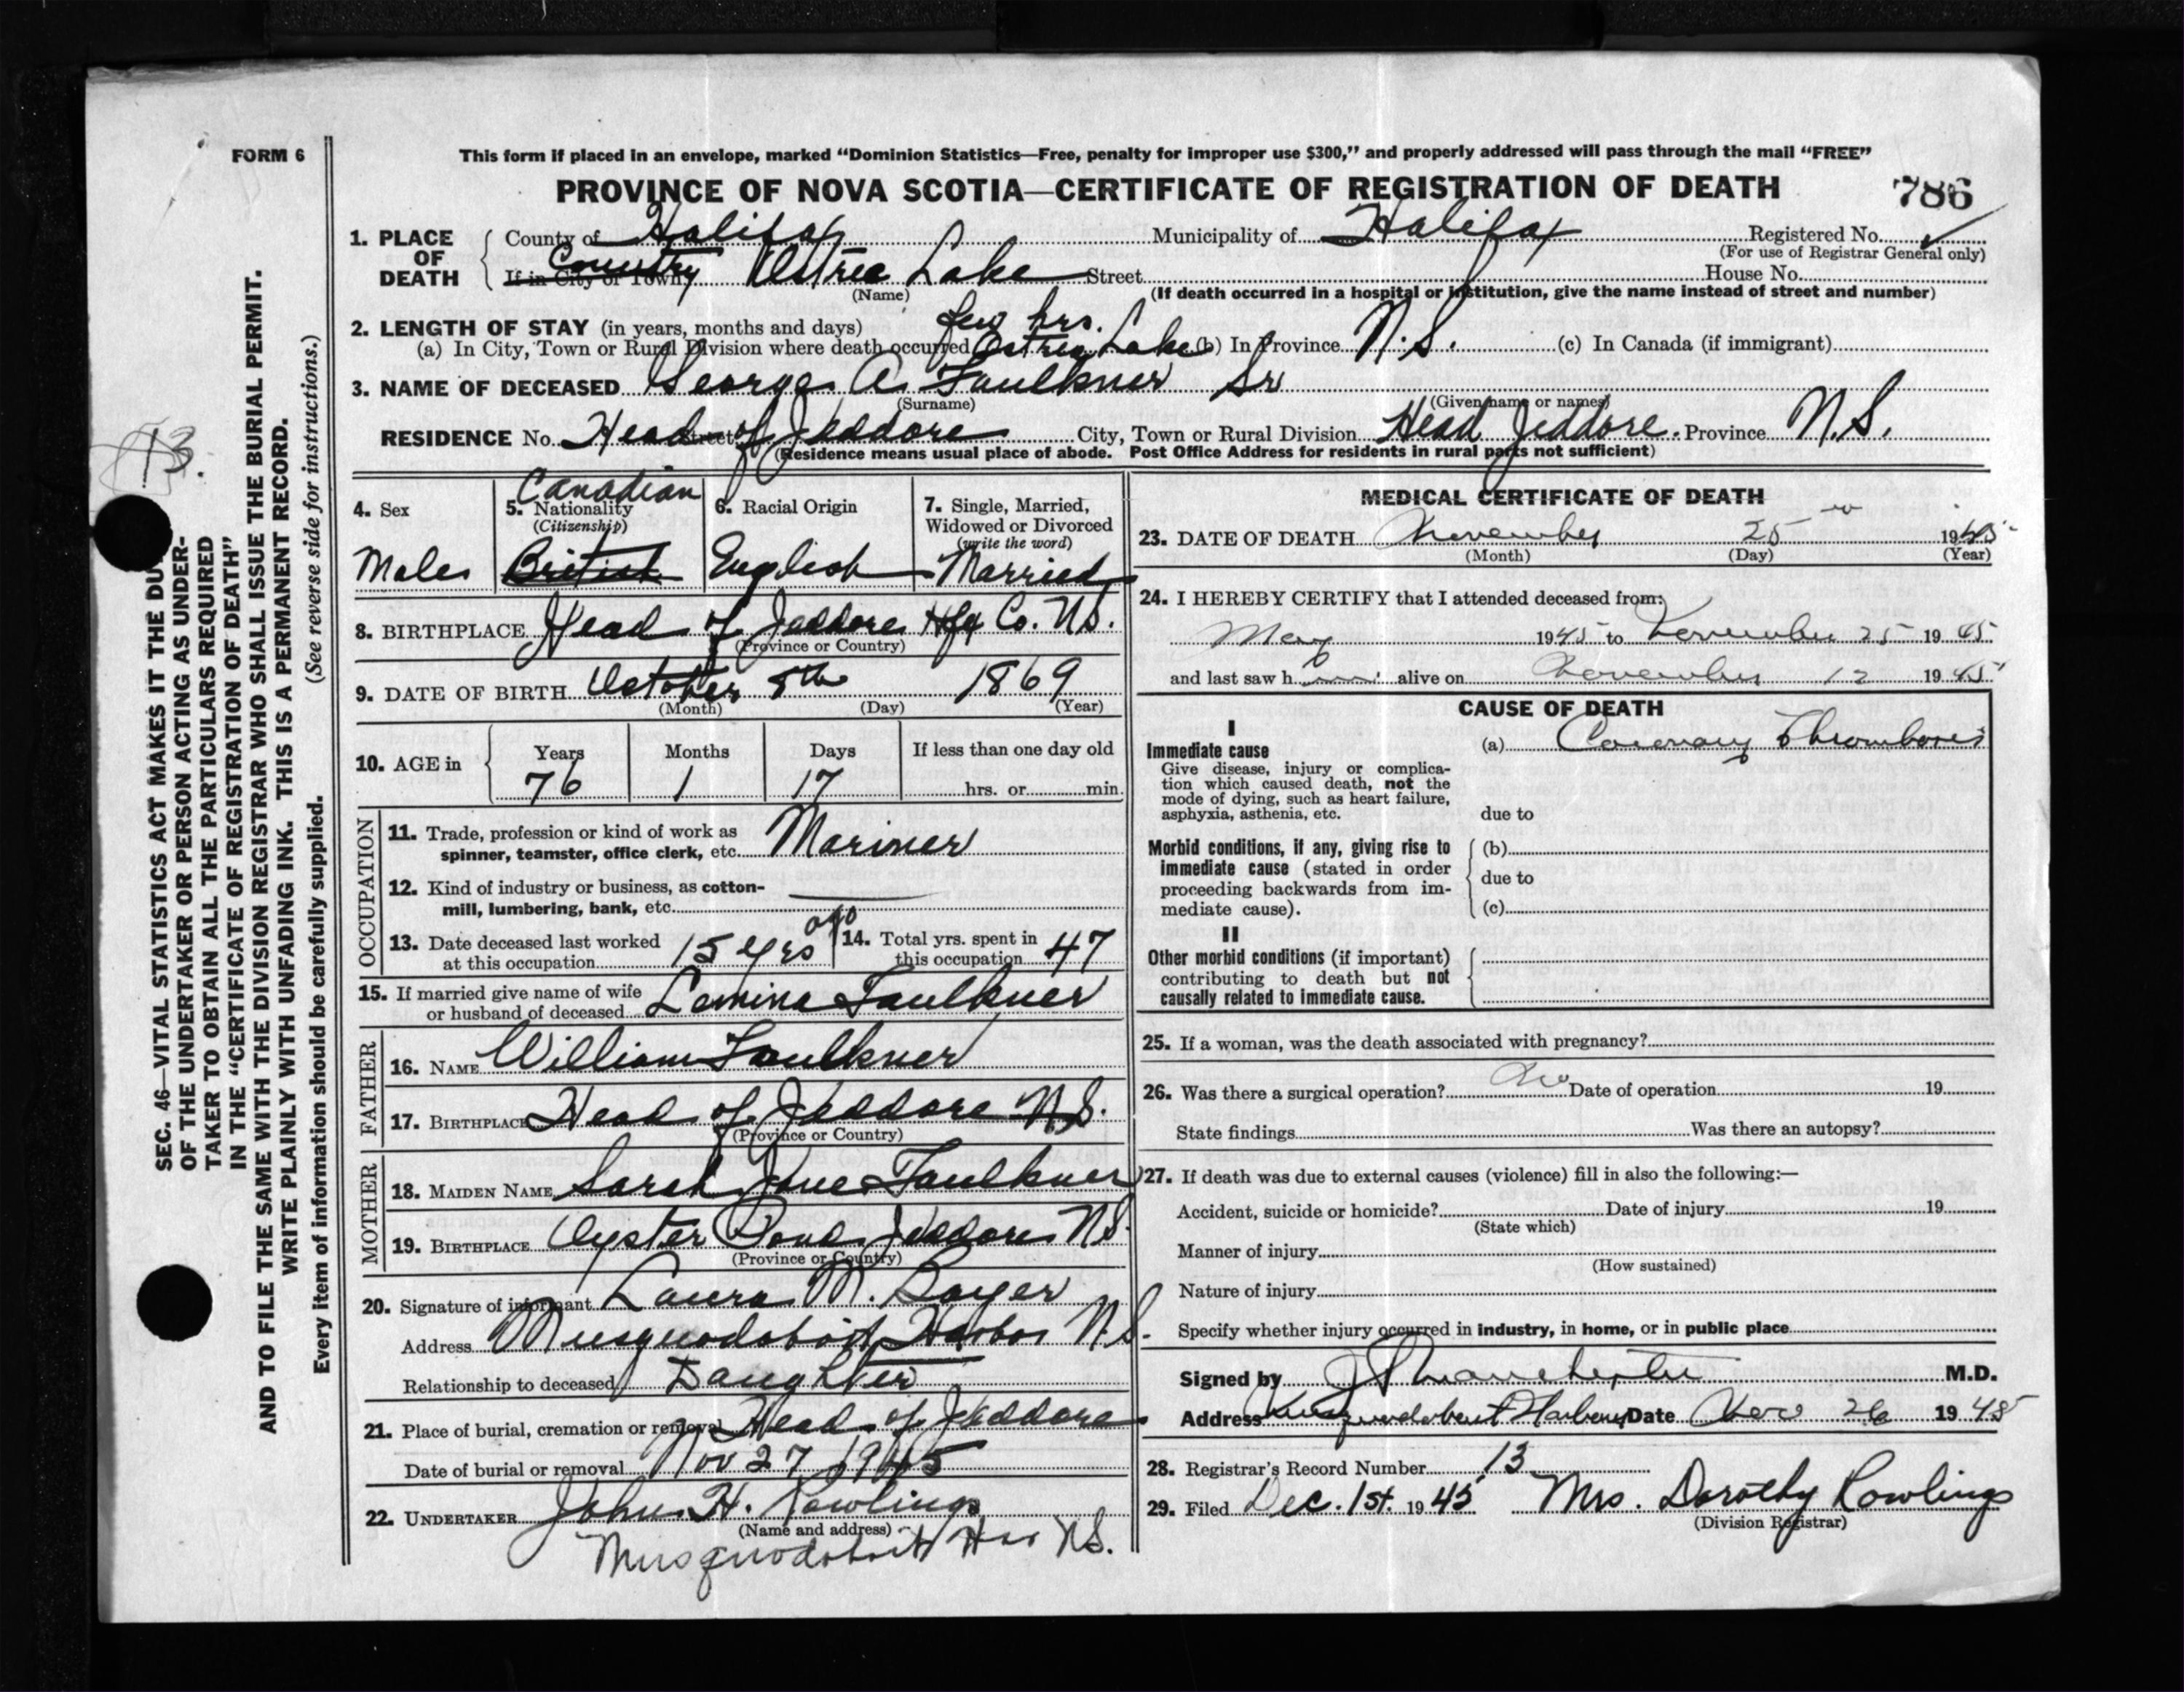 FORM 6
This form if placed in an envelope, marked “Dominion Statistics—Free, penalty for improper use $300,” and properly addressed will pass through the mail “FREE”
PROVINCE OF NOVA SCOTIA—CERTIFICATE OF REGISTRATION OF DEATH 786
1. PLACE OF DEATH
County of Halifax Municipality of Halifax Registered No. ✓
(For use of Registrar General only)
If in City or Town Country Ostrea Lake Street House No.
(Name) (If death occurred in a hospital or institution, give the name instead of street and number)
2. LENGTH OF STAY (in years, months and days) few hrs.
(a) In City, Town or Rural Division where death occurred Ostrea Lake (b) In Province N.S. (c) In Canada (if immigrant)
3. NAME OF DECEASED George A Faulkner Sr
(Surname) (Given name or names)
RESIDENCE No. Head of Jeddore Street City, Town or Rural Division Head Jeddore. Province N.S.
(Residence means usual place of abode. Post Office Address for residents in rural parts not sufficient)
4. Sex
Male
5. Nationality Canadian
(Citizenship)
British
6. Racial Origin
English
7. Single, Married,
Widowed or Divorced
(write the word)
Married
8. BIRTHPLACE Head of Jeddore Hfx Co. N.S.
(Province or Country)
9. DATE OF BIRTH October 8th 1869
(Month) (Day) (Year)
10. AGE in
Years Months Days If less than one day old
76 1 17 hrs. or min.
OCCUPATION
11. Trade, profession or kind of work as
spinner, teamster, office clerk, etc. Mariner
12. Kind of industry or business, as cotton-
mill, lumbering, bank, etc.
13. Date deceased last worked
at this occupation 15 yrs ago
14. Total yrs. spent in
this occupation 47
15. If married give name of wife
or husband of deceased Lamina Faulkner
FATHER
16. NAME William Faulkner
17. BIRTHPLACE Head of Jeddore N.S.
(Province or Country)
MOTHER
18. MAIDEN NAME Sarah Jane Faulkner
19. BIRTHPLACE Oyster Pond Jeddore NS
(Province or Country)
20. Signature of informant Laura M. Bayer
Address Musquodoboit Harbor N.S.
Relationship to deceased Daughter
21. Place of burial, cremation or removal Head of Jeddore
Date of burial or removal Nov 27 1945
22. UNDERTAKER John H. Rowlings
(Name and address)
Musquodoboit Har NS.
MEDICAL CERTIFICATE OF DEATH
23. DATE OF DEATH November 25 1945
(Month) (Day) (Year)
24. I HEREBY CERTIFY that I attended deceased from:
May 1945 to November 25 1945
and last saw h im alive on November 12 1945
CAUSE OF DEATH
I
Immediate cause
Give disease, injury or complica-
tion which caused death, not the
mode of dying, such as heart failure,
asphyxia, asthenia, etc.
(a) Coronary Thrombosis
due to
Morbid conditions, if any, giving rise to
immediate cause (stated in order
proceeding backwards from im-
mediate cause).
(b)
due to
(c)
II
Other morbid conditions (if important)
contributing to death but not
causally related to immediate cause.
25. If a woman, was the death associated with pregnancy?
26. Was there a surgical operation? No Date of operation 19
State findings Was there an autopsy?
27. If death was due to external causes (violence) fill in also the following:—
Accident, suicide or homicide? Date of injury 19
(State which)
Manner of injury
(How sustained)
Nature of injury
Specify whether injury occurred in industry, in home, or in public place
Signed by Manchester M.D.
Address Musquodoboit Harbour Date Nov 26 1945
28. Registrar's Record Number 13
29. Filed Dec. 1st. 1945 Mrs. Dorothy Rowlings
(Division Registrar)
13.
SEC. 46—VITAL STATISTICS ACT MAKES IT THE DU
OF THE UNDERTAKER OR PERSON ACTING AS UNDER-
TAKER TO OBTAIN ALL THE PARTICULARS REQUIRED
IN THE “CERTIFICATE OF REGISTRATION OF DEATH”
AND TO FILE THE SAME WITH THE DIVISION REGISTRAR WHO SHALL ISSUE THE BURIAL PERMIT.
WRITE PLAINLY WITH UNFADING INK. THIS IS A PERMANENT RECORD.
Every item of information should be carefully supplied. (See reverse side for instructions.)